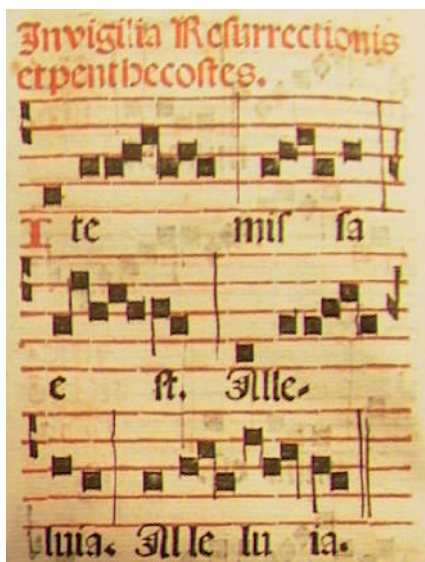 In vigilia Resurrectionis
et penthecostes.
I te mis sa
e st. Alle-
luia. Alle lu ia.